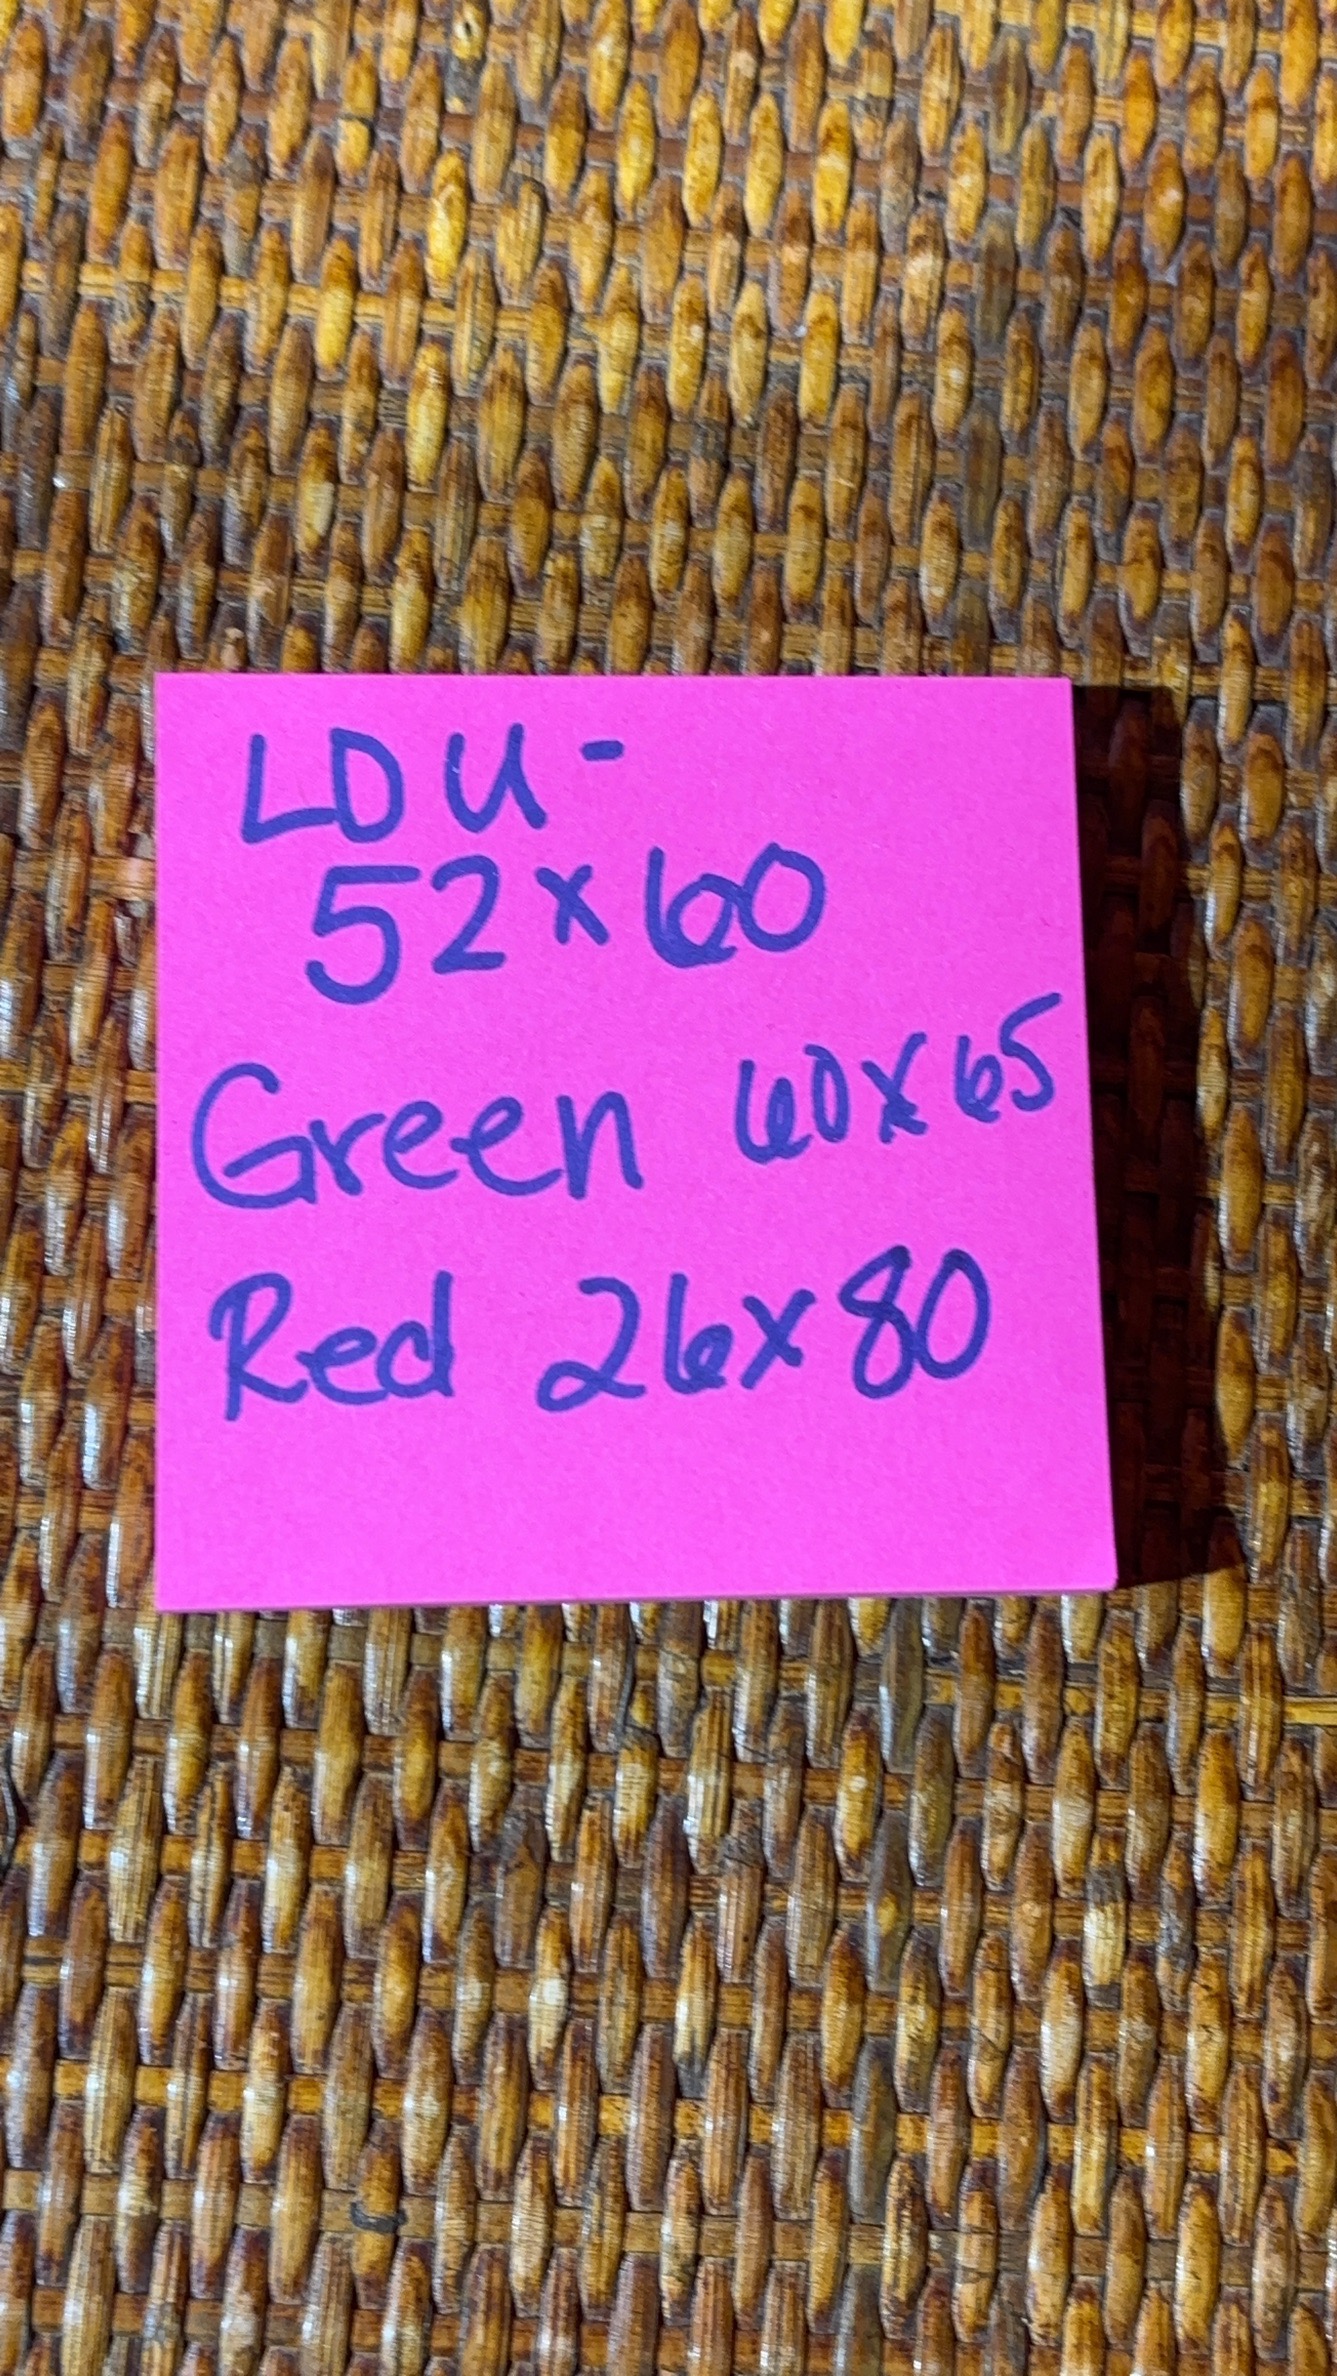 LDU -
52 x 60
Green 60 x 65
Red 26 x 80